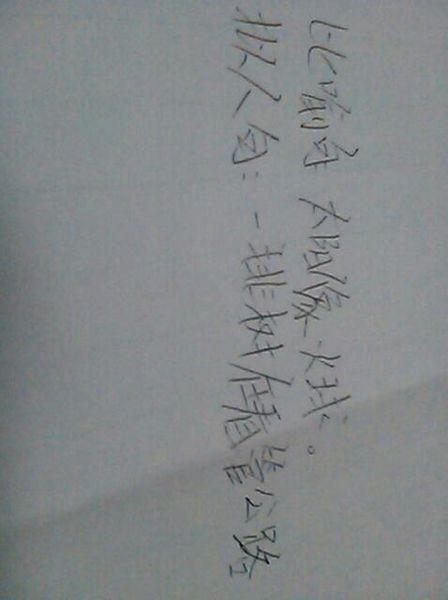 比喻句 太阳像火球。
拟人句：一排树着管公路